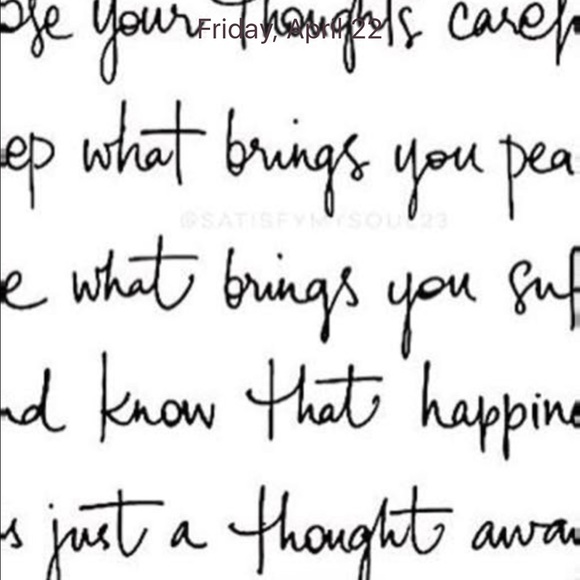 ose your thoughts caref
Friday, April 22
ep what brings you pea
@SATISFYMYSOUL23
e what brings you suf
nd know that happine
s just a thought away